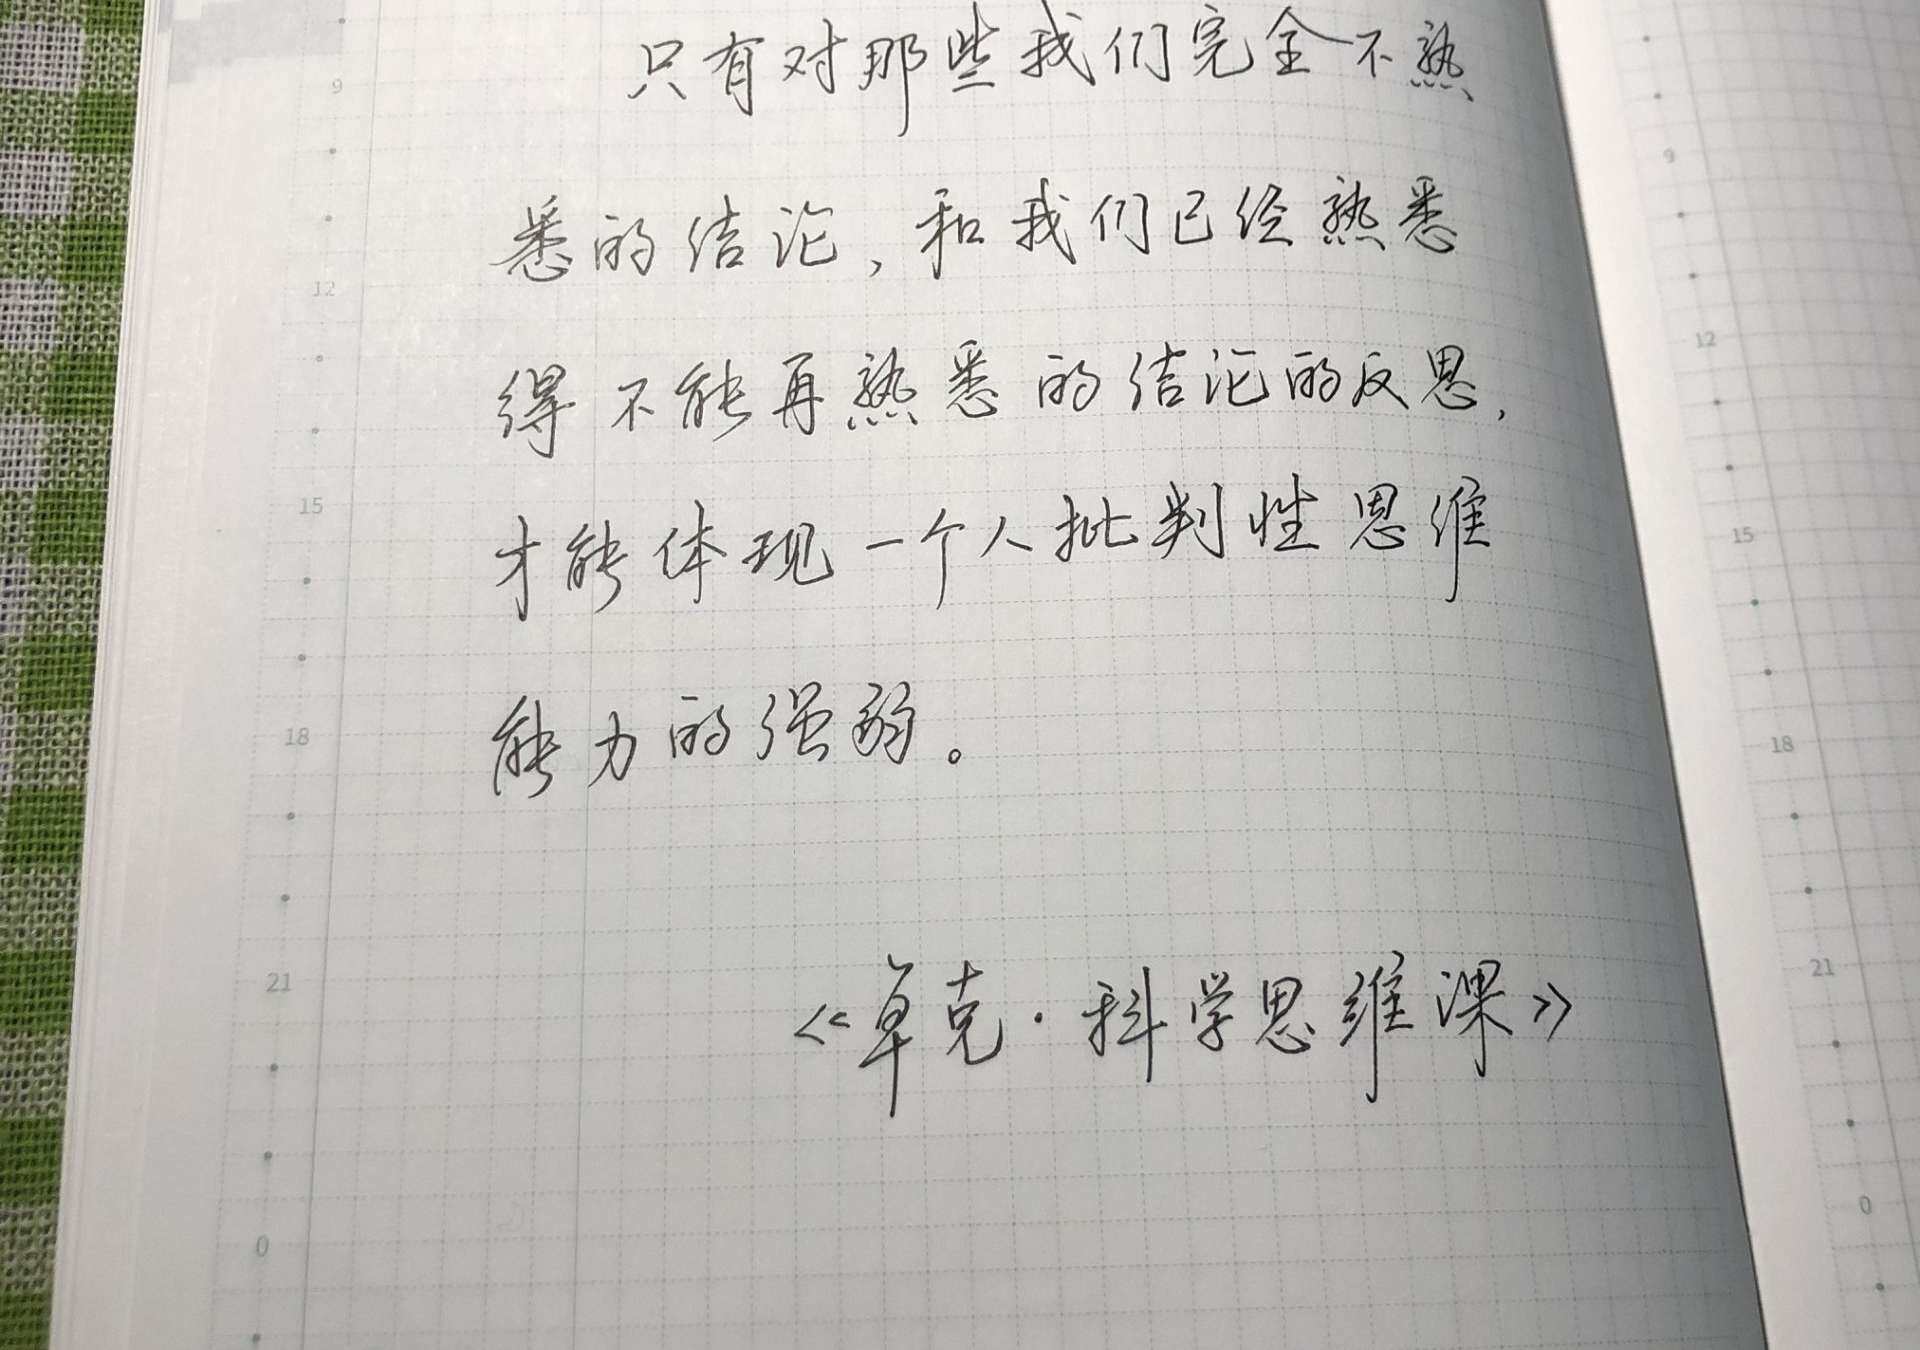 只有对那些我们完全不熟
悉的结论，和我们已经熟悉
得不能再熟悉的结论的反思，
才能体现一个人批判性思维
能力的强弱。
《卓克·科学思维课》
9
12
15
18
21
0
9
12
15
18
21
0